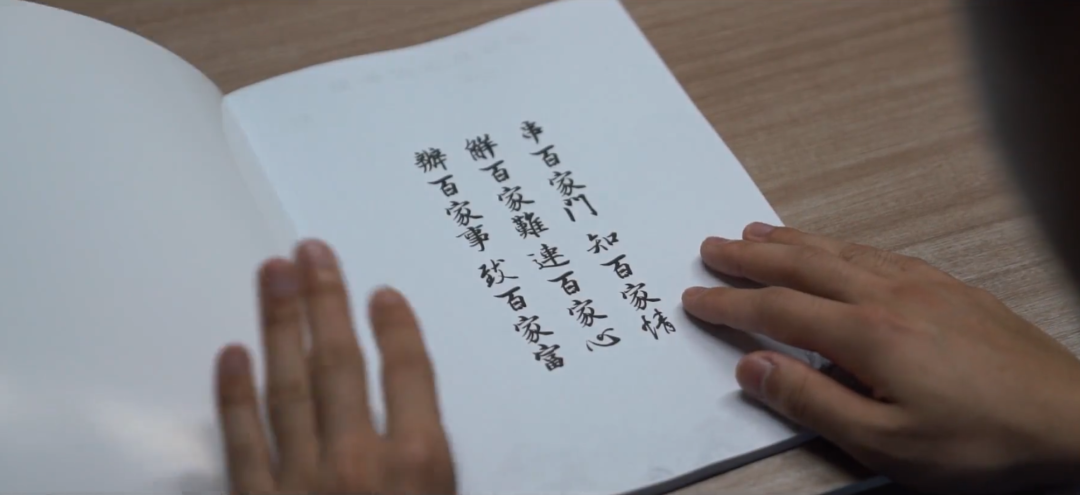 串百家門 知百家情
解百家難 連百家心
辦百家事 致百家富